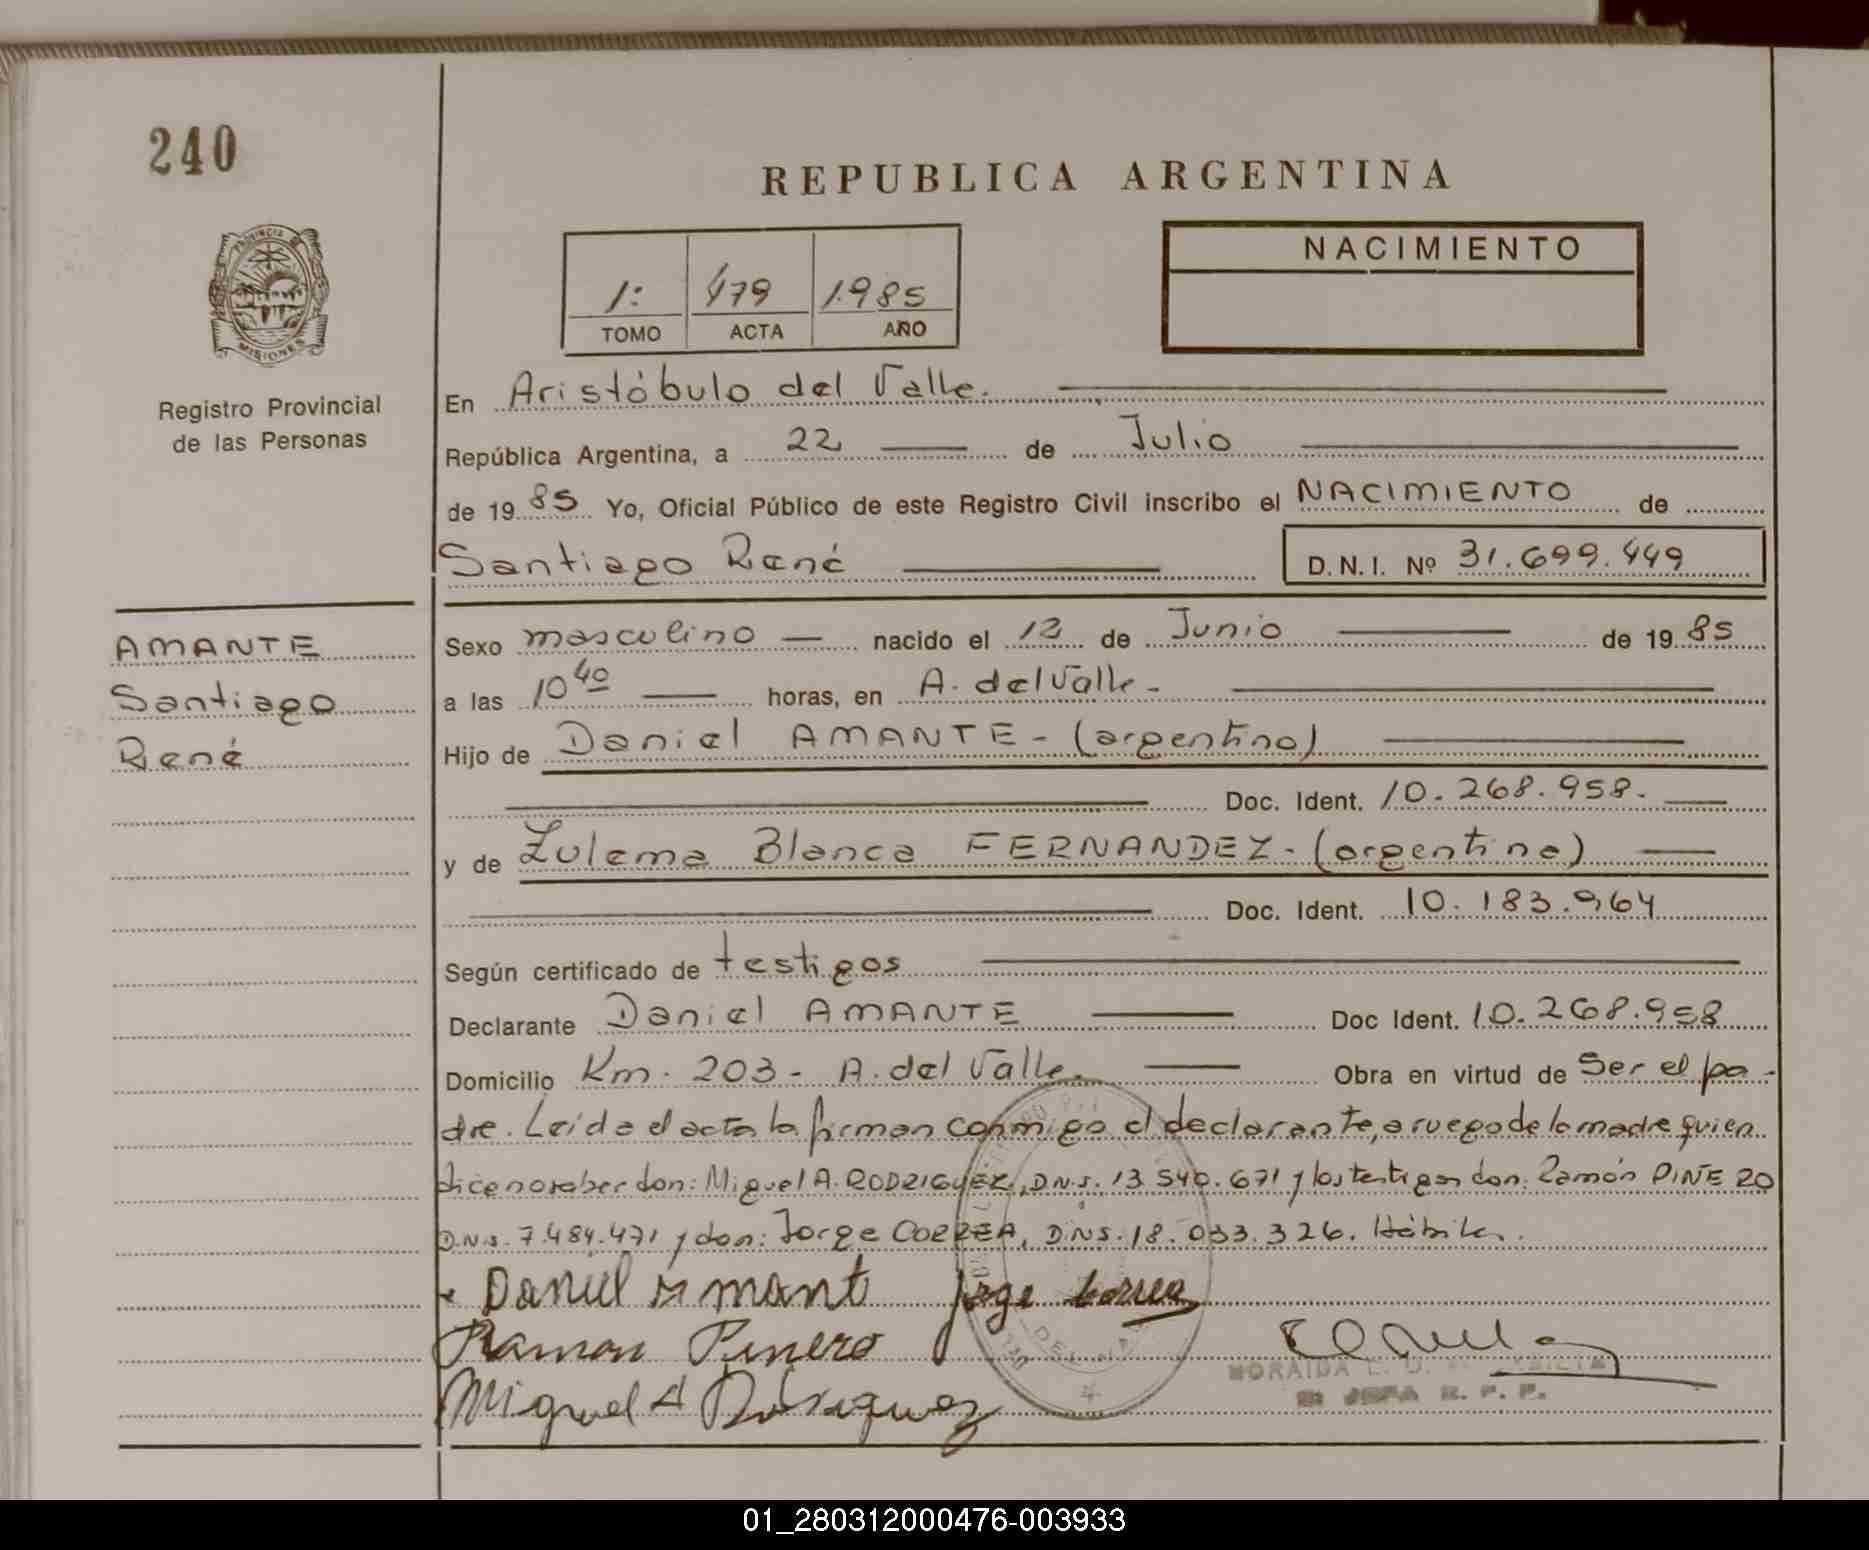 240
REPUBLICA ARGENTINA
PROVINCIA DE
MISIONES
Registro Provincial
de las Personas
1: 479 1.985
TOMO ACTA AÑO
NACIMIENTO
En Aristóbulo del Valle.
República Argentina, a 22 de Julio
de 19 85 Yo, Oficial Público de este Registro Civil inscribo el NACIMIENTO de
Santiago René D.N.I. Nº 31.699.449
AMANTE
Santiago
René
Sexo masculino nacido el 12 de Junio de 19 85
a las 10 40 horas, en A. del Valle-
Hijo de Daniel AMANTE-(argentino)
Doc. Ident. 10.268.958.
y de Zulema Blanca FERNANDEZ-(argentina)
Doc. Ident. 10.183.964
Según certificado de testigos
Declarante Daniel AMANTE Doc Ident. 10.268.958
Domicilio Km. 203- A. del Valle. Obra en virtud de Ser el pa-
dre. Leída el acta la firman conmigo el declarante, a ruego de la madre quien
dice no saber don: Miguel A. RODRIGUEZ, D.N.I. 13.540.671 y los testigos don: Ramón PIÑERO
D.N.I. 7.484.471 y don: Jorge CORREA, D.N.I. 18.033.326. Hábiles.
Daniel Amant Jorge Correa
Ramon Pinero
Miguel A Rodriguez
JEFA R. P. P.
01_280312000476-003933